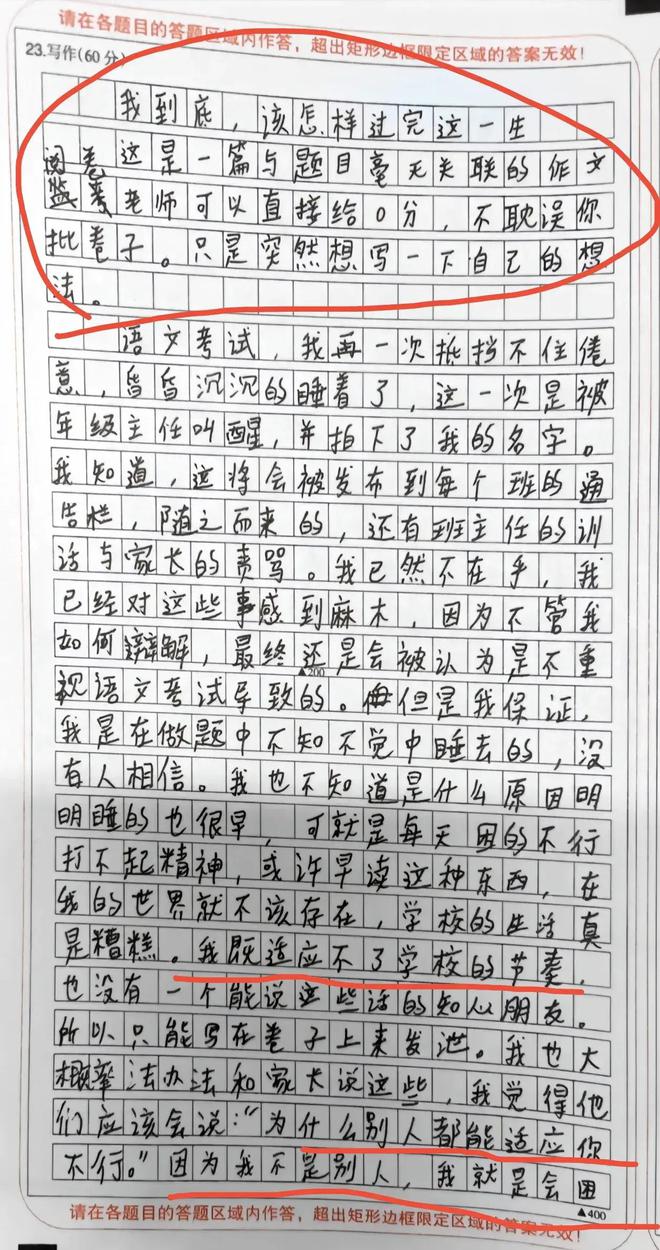 请在各题目的答题区域内作答，超出矩形边框限定区域的答案无效！
23.写作(60分)
我到底，该怎样过完这一生
阅卷这是一篇与题目毫无关联的作文
监考老师可以直接给0分，不耽误你
批卷子。只是突然想写一下自己的想
法。
语文考试，我再一次抵挡不住倦
意，昏昏沉沉的睡着了，这一次是被
年级主任叫醒，并拍下了我的名字。
我知道，这将会被发布到每个班的通
告栏，随之而来的，还有班主任的训
话与家长的责骂。我已然不在乎，我
已经对这些事感到麻木，因为不管我
如何辩解，最终还是会被认为是不重
▲200
视语文考试导致的。但是我保证，
我是在做题中不知不觉中睡去的，没
有人相信。我也不知道是什么原因明
明睡的也很早，可就是每天困的不行
打不起精神，或许早读这种东西，在
我的世界就不该存在，学校的生活真
是糟糕。我既适应不了学校的节奏，
也没有一个能说这些话的知心朋友。
所以只能写在卷子上来发泄。我也大
概率法办法和家长说这些，我觉得他
们应该会说：“为什么别人都能适应你
不行。”因为我不是别人，我就是会困
▲400
请在各题目的答题区域内作答，超出矩形边框限定区域的答案无效！